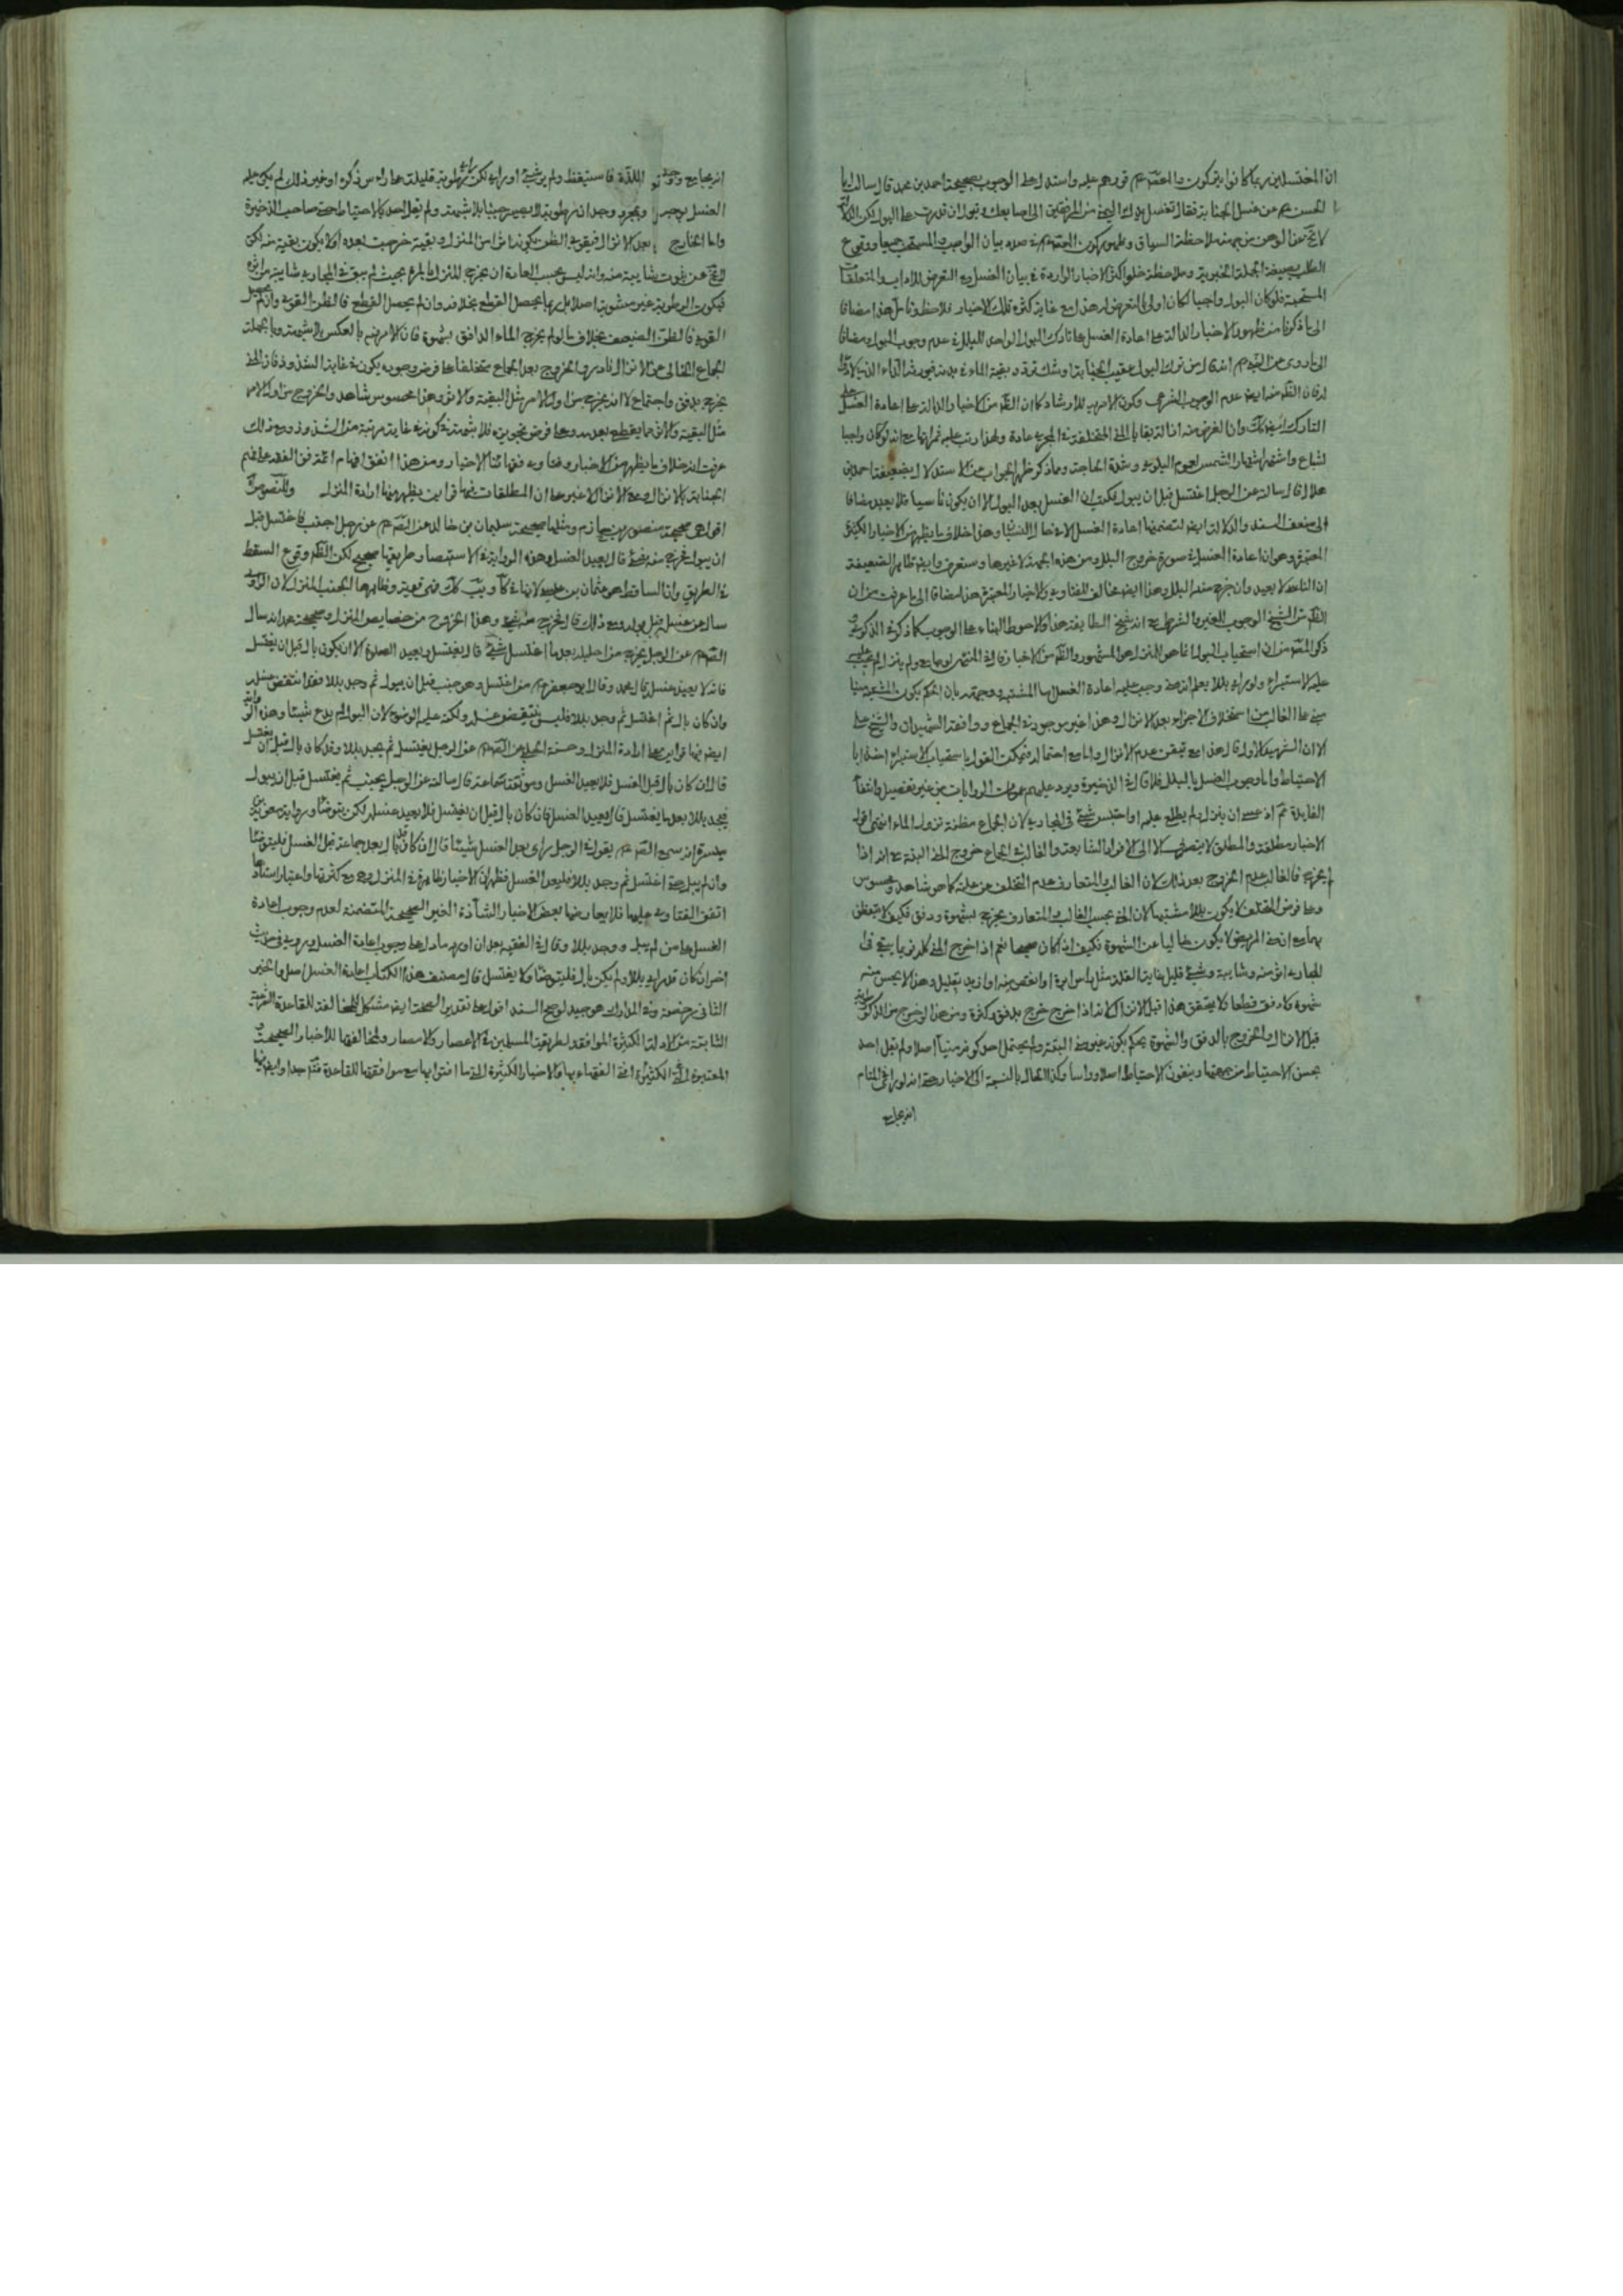 ان المغتسلين ربما كانوا يتركون و المعصوم ع قررهم عليه واستدل على الوجوب بصحيحة احمد بن محمد قال سالت ابا
الحسن ع عن غسل الجنابة فقال تغسل يدك اليمنى من المرفقين الى اصابعك وتبول ان قدرت على البول لكن الدلالة
لا تخ عن الوهن من جهة ملاحظة السياق و ظهور كون المعصوم في صدد بيان الواجب والمستحب جميعا ووقوع
الطلب بصيغة الجملة الخبرية وملاحظة خلو اكثر الاخبار الواردة في بيان الغسل مع التعرض للاداب والمتعلقات
المستحبة فلو كان البول واجبا لكان اولى بالتعرض له هذا مع غاية كثرة تلك الاخبار فلاحظ وتامل هذا مضافا
الى ما ذكرنا من ظهور الاخبار الدالة على اعادة الغسل على تارك البول الواجد للبلل في عدم وجوب البول مضافا
الى ما روى عن النبي ص انه قال من ترك البول عقيب الجنابة اوشك تردد بقية الماء في بدنه فيورثه الداء الذي لا دواء
له فان الظ منه ايض عدم الوجوب الشرعي وكون الامر به للارشاد كما ان الظ من الاخبار الدالة على اعادة الغسل على
التارك ايض ذلك وان الغرض منه ازالة بقايا المني المتخلفة في المجرى عادة ولهذا رتب عليه ثمراتها مع انه لو كان واجبا
لشاع واشتهر اشتهار الشمس لعموم البلوى وشدة الحاجة ومما ذكر ظهر الجواب عن الاستدلال بضعيفة احمد بن
هلال قال سالته عن الرجل اغتسل قبل ان يبول فكتب ان الغسل بعد البول الا ان يكون ناسيا فلا يعيد مضافا
الى ضعف السند والدلالة ايض لتضمنها اعادة الغسل الا في حال النسيان وهذا خلاف ما يظهر من الاخبار الكثيرة
المعتبرة وهو ان اعادة الغسل في صورة خروج البلل ومن هذه الجهة لا غيرها وستعرف وايض ظاهر الضعيفة
ان الناسي لا يعيد وان خرج منه البلل وهذا ايض مخالف للفتاوى والاخبار المعتبرة هذا مضافا الى ما عرفت من ان
الظ من الشيخ الوجوب الغيري والشرطي مع انه شيخ الطايفة هذا والاحوط البناء على الوجوب كما ذكره
ذكر المص من ان استحباب البول انما هو للمنزل هو المشهور والظ من الاخبار قال في المنتهى لو جامع ولم ينزل لم يجب
عليه الاستبراء ولو راى بللا يعلم انه مني وجب عليه اعادة الغسل اما المشتبه
مبنى على الغالب من استخلاف الاجزاء بعد الانزال وهذا غير موجود في الجماع ووافقه الشهيدان والشيخ علي
الا ان الشهيد الاول قال هذا مع تيقن عدم الانزال واما مع احتماله فيمكن القول باستحباب الاستبراء اخذا با
الاحتياط واما وجوب الغسل بالبلل فلا قال في الذخيرة ويرد عليهم عمومات الروايات من غير تفصيل وانتفاء
الفايدة ثم اذ عسى ان ينزل ولم يطلع عليه او احتبس شيئ في المجاري لان الجماع مظنة نزول الماء انتهى اقول
الاخبار مطلقة والمطلق لا ينصرف الا الى الافراد الشايعة والغالب في الجماع خروج المني البتة مع انه اذا
لم يخرج فالغالب عدم الخروج بعد ذلك لان الغالب والمتعارف عدم التخلف عن علته كما هو شاهد ومحسوس
وعلى فرض التخلف لا يكون بللا مشتبها لان المني بحسب الغالب والمتعارف يخرج بشهوة ودفق
بهما مع ان مني المريض لا يكون خاليا عن الشهوة فكيف اذا كان صحيحا نعم اذا خرج المني كله ربما يبقى في
المجاري اثر منه وشايبة وشيئ قليل بغاية القلة مثل راس ابرة او انقص منه او ازيد بقليل وهذا لا يحس منه
شهوة ولا دفق قطعا ولا يتحقق هذا قبل الانزال لانه اذا خرج خرج بدفق وكثرة ومن هذا لو خرج من الذكر
قبل الانزال والخروج بالدفق والشهوة يحكم بكونه غير مني البتة ولم يحتمل احد كونه منيا اصلا ولم يقل احد
بحسن الاحتياط من جهتها وينفون الاحتياط اصلا وراسا وكذا الحال بالنسبة الى الاخبار حتى انه لو راى في المنام
انه يجامع
انه يجامع اللذة فاستيقظ ولم ير شيئا او راى لكن راى رطوبة قليلة على راس ذكره او غير ذلك لم يكن عليه
الغسل بوجه وبمجرد وجدان رطوبة لا يصير جنبا بلا شبهة ولم يقل احد بالاحتياط حتى صاحب الذخيرة
واما الخارج بعد الانزال فيقوى الظن بكونه اثرا من المنزل وبقية خرجت بعده اذ لا يكون بقية منه لكن
لا يخ عن ثبوت شايبة منه وانه ليس بحسب العادة ان يخرج المنزل بالمرة بحيث لم يبق في المجاري شايبة من اثره
فيكون الرطوبة غير مشوبة اصلا بل ربما يحصل القطع بخلافه وان لم يحصل القطع فالظن القوي وان لم يحصل
القوي فالظن الضعيف بخلاف ما لو لم يخرج الماء الدافق بشهوة فان الامر فيه بالعكس بلا شبهة وبالجملة
الجماع الخالي عن الانزال نادر والخروج بعد الجماع متخلفا على فرض وجوده يكون في غاية الشذوذ فان المني
يخرج بدفق واجتماع لا انه يخرج جزء اول الامر مثل البقية والاثر وهذا محسوس شاهد والخروج من اول الامر
مثل البقية والاثر مما يقطع بعدمه وعلى فرض تجويزه فلا شبهة في كونه في غاية مرتبة من الشذوذ ومع ذلك
عرفت انه خلاف ما يظهر من الاخبار وفتاوى فقهائنا الاخيار ومن هذا اتفق افهام
الجنابة بالانزال وعد الانزال لا غير على ان المطلقات فيها قراين يظهر منها ارادة المنزل
اقواهن صحيحة منصور بن حازم ومثلها صحيحة سليمان بن خالد عن الص ع عن رجل اجنب فاغتسل قبل
ان يبول فخرج منه شيئ قال يعيد الغسل وهذه الرواية في الاستبصار وطريقها صحيح لكن الظ وقوع السقط
في الطريق وان الساقط هو عثمان بن عيسى
سال عن غسل قبل بوله ومع ذلك قال يخرج منه شيئ وهذا الخروج من خصايص المنزل وصحيحة محمد انه سال
الص ع عن الرجل يخرج من احليله بعد ما اغتسل شيئ قال يغتسل ويعيد الصلوة الا ان يكون بال قبل ان يغتسل
فانه لا يعيد غسله قال محمد وقال ابو جعفر ع من اغتسل وهو جنب قبل ان يبول ثم وجد بللا فقد انتقض غسله
وان كان بال ثم اغتسل ثم وجد بللا فليس ينتقض غسله ولكن عليه الوضوء لان البول لم يدع شيئا وهذه
ايض فيها قراين على ارادة المنزل وحسنة الحلبي عن الص ع عن الرجل يغتسل ثم يجد بللا وقد كان بال قبل ان يغتسل
قال ان كان بال قبل الغسل فلا يعيد الغسل وموثقة سماعة قال سالته عن الرجل يجنب ثم يغتسل قبل ان يبول
فيجد بللا بعد ما يغتسل قال يعيد الغسل فان كان بال قبل ان يغتسل فلا يعيد غسله لكن يتوضا ورواية معوية بن
ميسرة انه سمع الص ع يقول في الرجل راى بعد الغسل شيئا قال ان كان بال بعد جماعه قبل الغسل فليتوضا
وان لم يبل حتى اغتسل ثم وجد بللا فليعد الغسل فظهر ان الاخبار ظاهرة في المنزل ومع كثرتها واعتبار اسنادها
اتفق الفتاوى عليها فلا يعارضها بعض الاخبار الشاذة الغير الصحيحة المتضمنة لعدم وجوب اعادة
الغسل على من لم يبل ووجد بللا وقال في الفقيه بعد ان اورد ما دل على وجوب اعادة الغسل وروى في حديث
اخر ان كان قد راى بللا ولم يكن بال فليتوضا ولا يغتسل قال مصنف هذا الكتاب اعادة الغسل اصل والخبر
الثاني رخصة وفي المدارك هو جيد لو صح السند اقول على تقدير الصحة ايض مشكل لمخالفة للقاعدة الشرعية
الثابتة من الادلة الكثيرة الموافقة لطريقة المسلمين في الاعصار والامصار ولمخالفتها للاخبار الصحيحة و
المعتبرة الكثيرة افتى الفقهاء بها والاخبار الكثيرة التي ما افتوا بها مع موافقتها للقاعدة